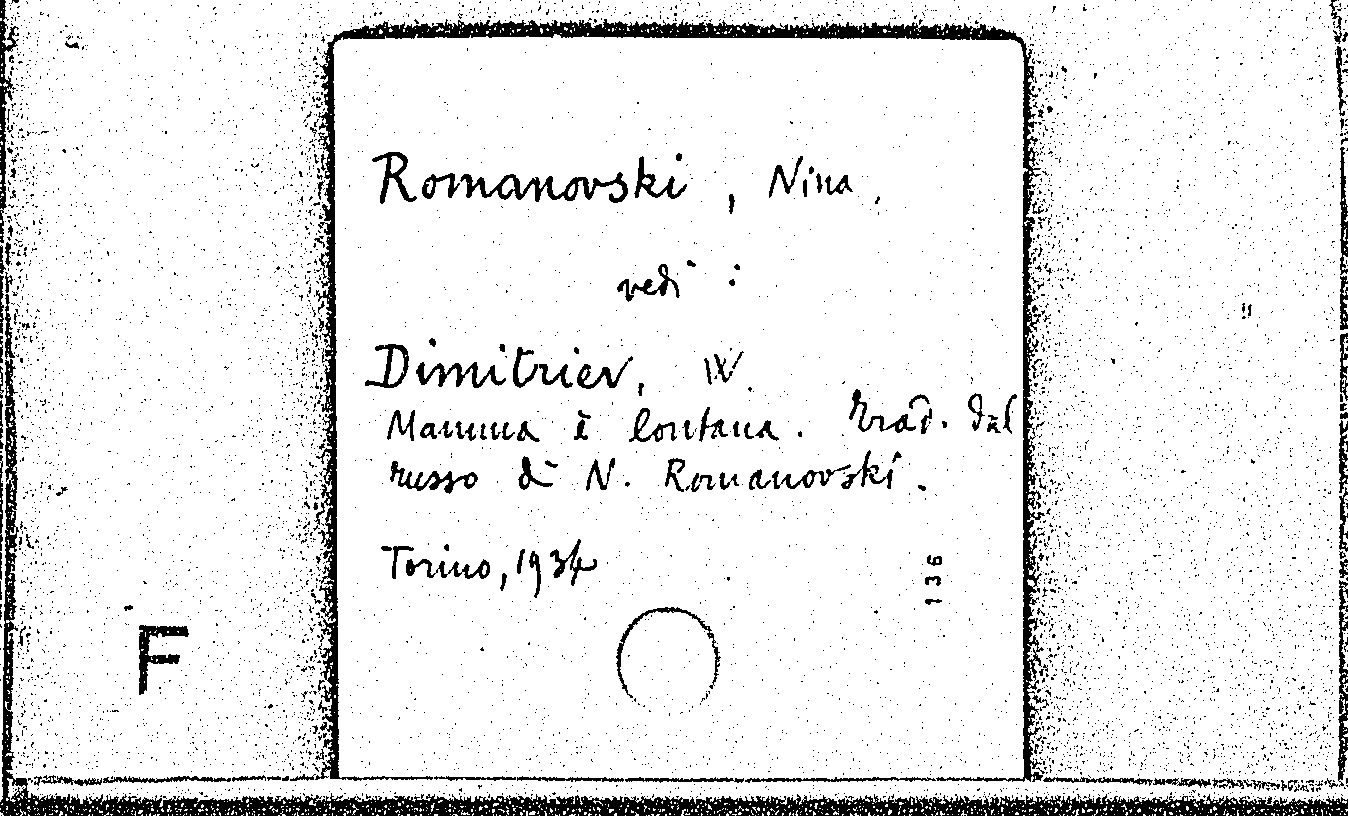 Romanovski, Nina.
vedi :
Dimitriev, W.
Mamma è lontana. Trad. dal
russo di N. Romanovski.
Torino, 1934
136
F